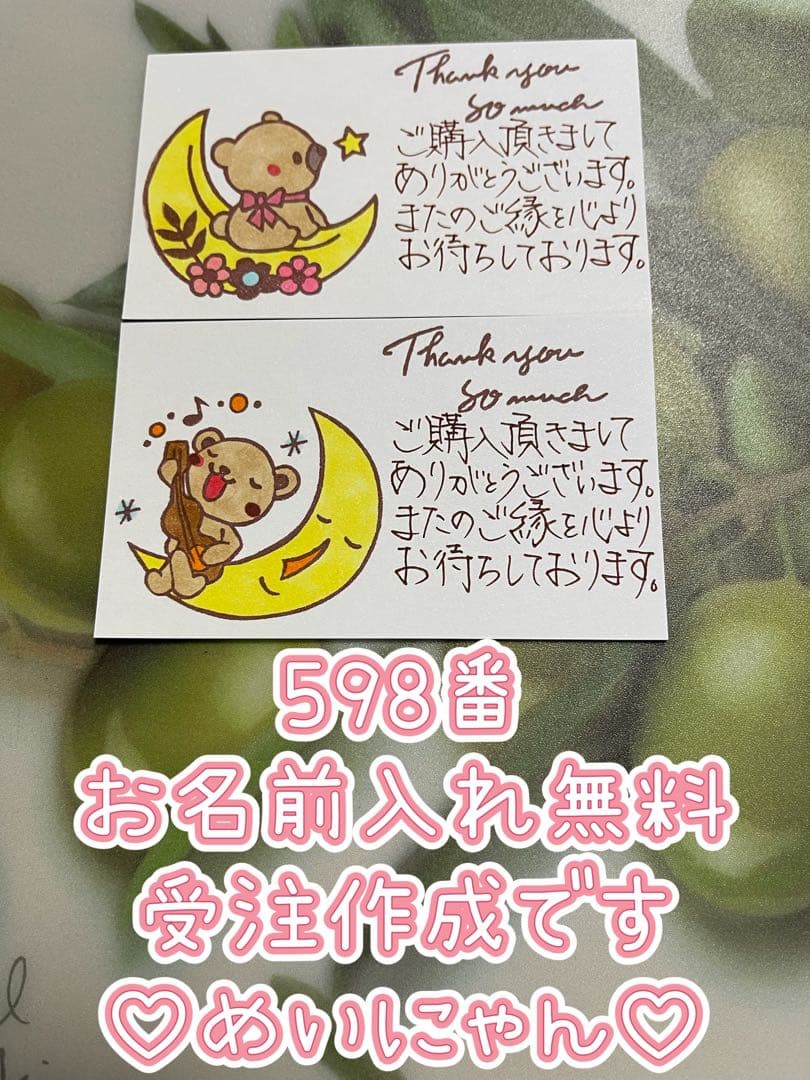 Thank you
so much
ご購入頂きまして
ありがとうございます。
またのご縁を心より
お待ちしております。
Thank you
so much
ご購入頂きまして
ありがとうございます。
またのご縁を心より
お待ちしております。
598番
お名前入れ無料
受注作成です
♡めいにゃん♡